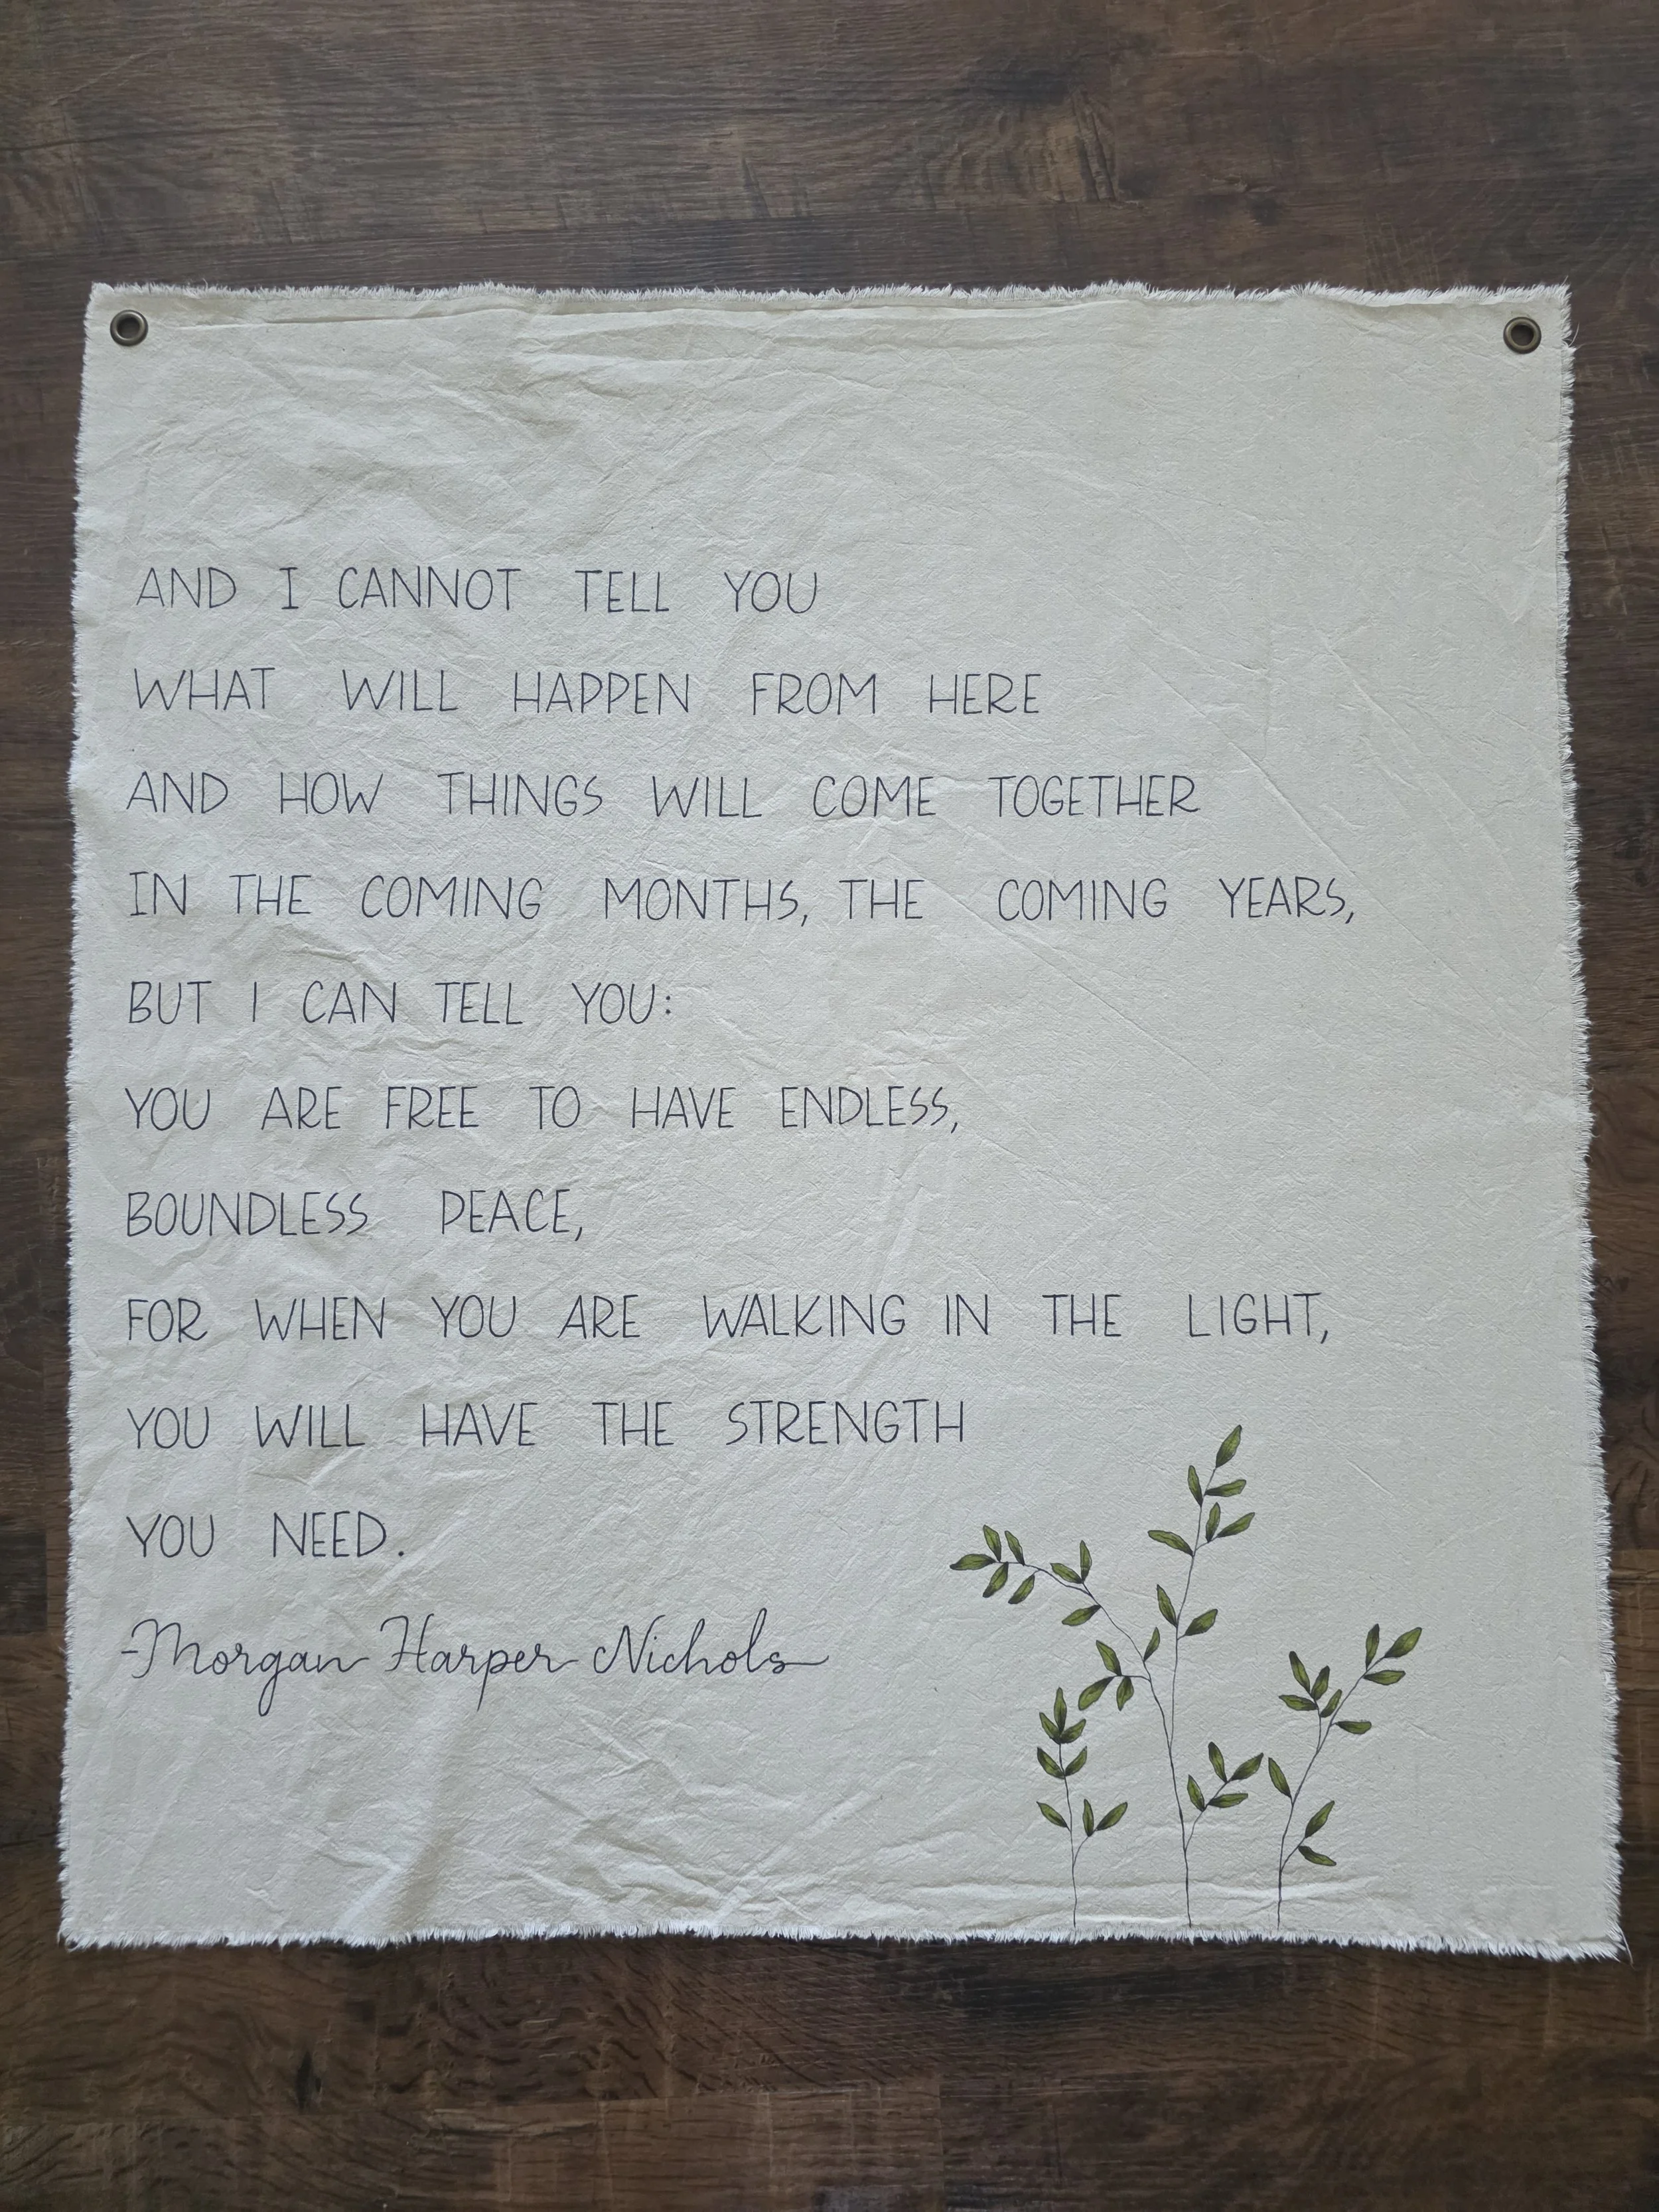 AND I CANNOT TELL YOU
WHAT WILL HAPPEN FROM HERE
AND HOW THINGS WILL COME TOGETHER
IN THE COMING MONTHS, THE COMING YEARS,
BUT I CAN TELL YOU:
YOU ARE FREE TO HAVE ENDLESS,
BOUNDLESS PEACE,
FOR WHEN YOU ARE WALKING IN THE LIGHT,
YOU WILL HAVE THE STRENGTH
YOU NEED.
-Morgan Harper Nichols